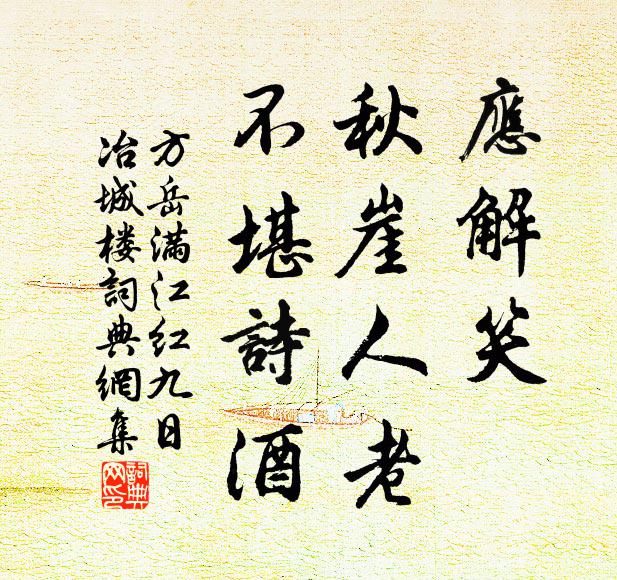 應解笑
秋崖人老
不堪詩酒
方岳滿江红九日
冶城楼詞典網集
詞典网印